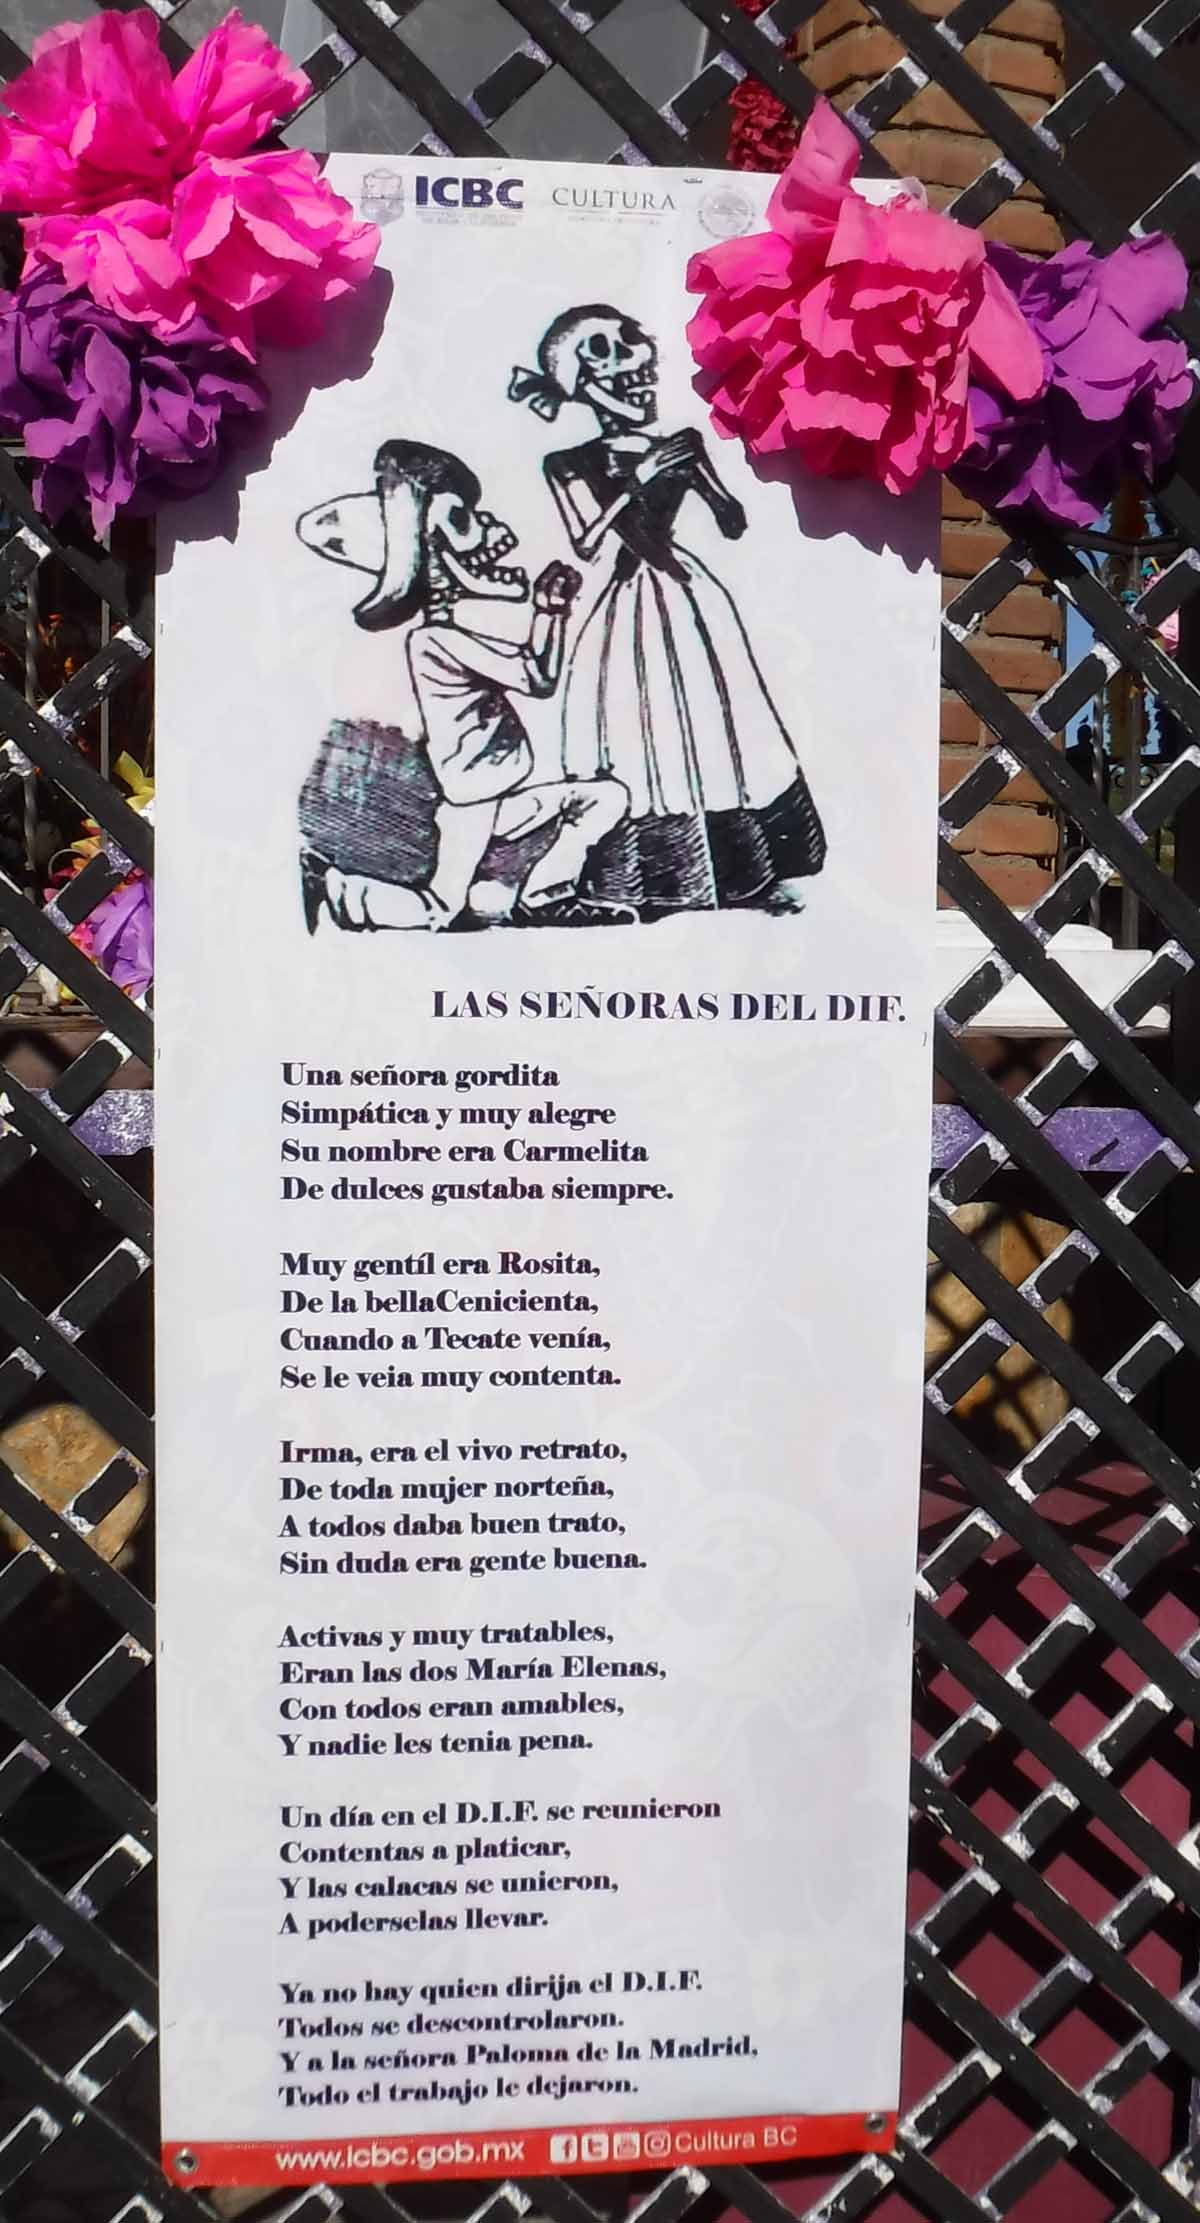 ICBC
CULTURA
LAS SEÑORAS DEL DIF.
Una señora gordita
Simpática y muy alegre
Su nombre era Carmelita
De dulces gustaba siempre.
Muy gentíl era Rosita,
De la bellaCenicienta,
Cuando a Tecate venía,
Se le veia muy contenta.
Irma, era el vivo retrato,
De toda mujer norteña,
A todos daba buen trato,
Sin duda era gente buena.
Activas y muy tratables,
Eran las dos María Elenas,
Con todos eran amables,
Y nadie les tenia pena.
Un día en el D.I.F. se reunieron
Contentas a platicar,
Y las calacas se unieron,
A poderselas llevar.
Ya no hay quien dirija el D.I.F.
Todos se descontrolaron.
Y a la señora Paloma de la Madrid,
Todo el trabajo le dejaron.
www.icbc.gob.mx Cultura BC